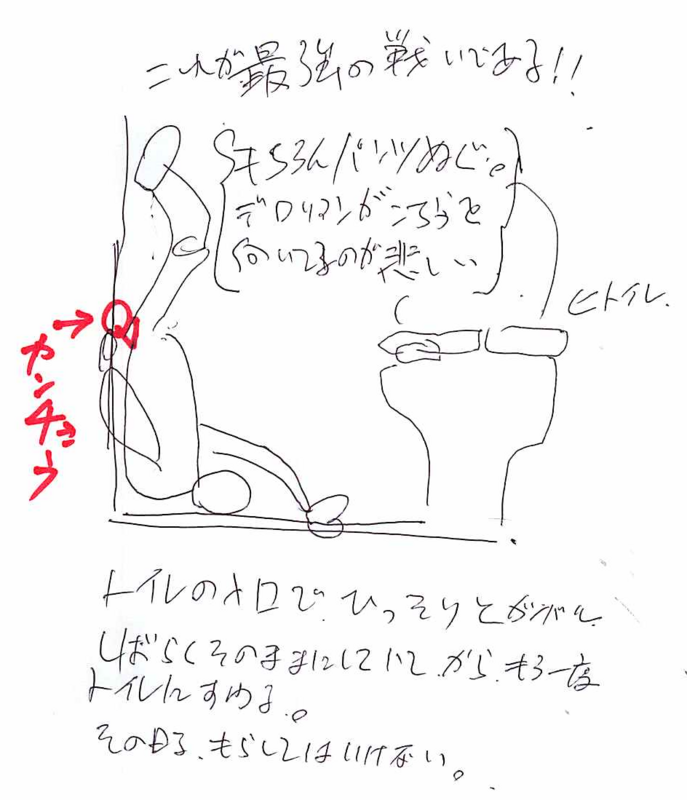 これが最強の戦いである!!
もちろんパンツぬぐ。
デロリアンがこっちを
向いてるのが悲しい
トイレ
カンチョウ
トイレの入口で、ひっそりとがんばり
しばらくそのままにしていて、から、もう一度
トイレにすわる。
その日る、もらしてはいけない。